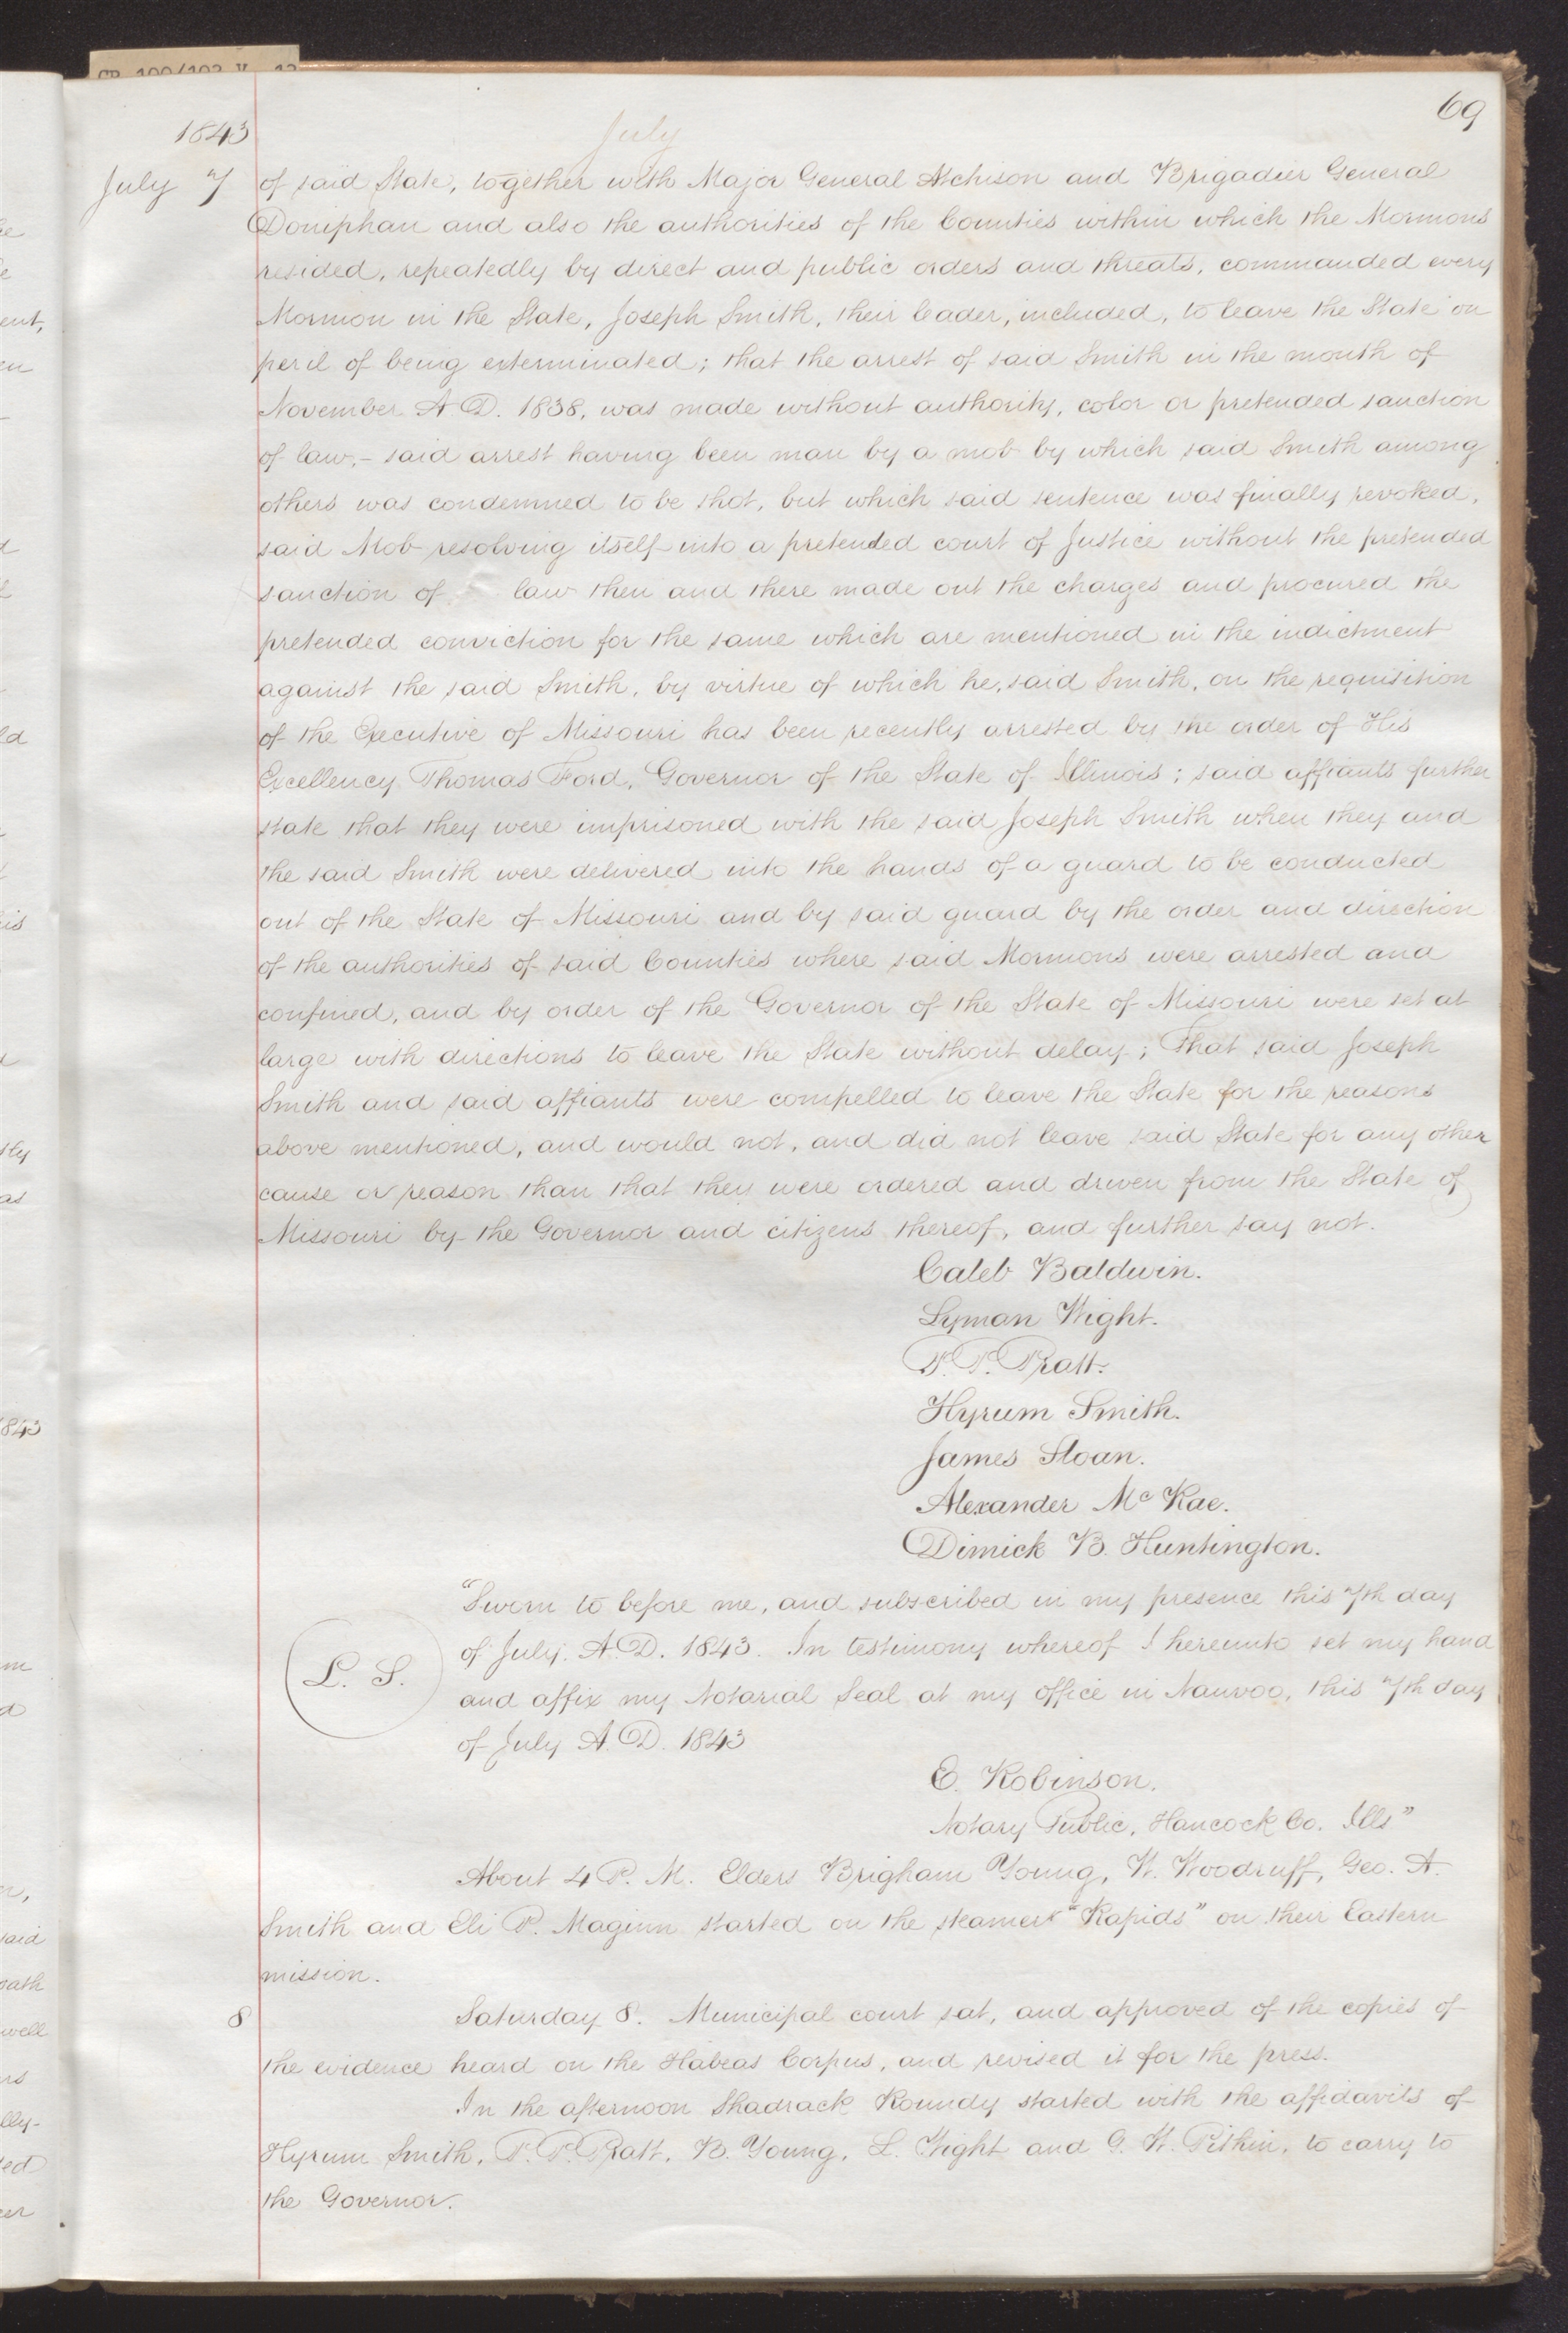 69
1843
July
July 7 of said State, together with Major General Atchison and Brigadier General
Doniphan and also the authorities of the Counties within which the Mormons
resided, repeatedly by direct and public orders and threats, commanded every
Mormon in the State, Joseph Smith, their leader, included, to leave the State on
peril of being exterminated; that the arrest of said Smith in the month of
November A.D. 1838, was made without authority, color or pretended sanction
of law,- said arrest having been man by a mob by which said Smith among
others was condemned to be shot, but which said sentence was finally revoked,
said Mob resolving itself into a pretended court of Justice without the pretended
sanction of law then and there made out the charges and procured the
pretended conviction for the same which are mentioned in the indictment
against the said Smith, by virtue of which he, said Smith, on the requisition
of the Executive of Missouri has been recently arrested by the order of His
Excellency Thomas Ford, Governor of the State of Illinois; said affiants further
state that they were imprisoned with the said Joseph Smith when they and
the said Smith were delivered into the hands of a guard to be conducted
out of the State of Missouri and by said guard by the order and direction
of the authorities of said Counties where said Mormons were arrested and
confined, and by order of the Governor of the State of Missouri were set at
large with directions to leave the State without delay; That said Joseph
Smith and said affiants were compelled to leave the State for the reasons
above mentioned, and would not, and did not leave said State for any other
cause or reason than that they were ordered and driven from the State of
Missouri by the Governor and citizens thereof, and further say not.
Caleb Baldwin.
Lyman Wight.
P. P. Pratt.
Hyrum Smith.
James Sloan.
Alexander McRae.
Dimick B. Huntington.
"Sworn to before me, and subscribed in my presence this 7th day
of July. A.D. 1843. In testimony whereof I hereunto set my hand
L. S.
and affix my Notarial Seal at my office in Nauvoo, this 7th day
of July A.D. 1843
E. Robinson.
Notary Public, Hancock Co. Ills"
About 4 P. M. Elders Brigham Young, W. Woodruff, Geo. A.
Smith and Eli P. Maginn started on the steamer "Rapids" on their Eastern
mission.
8 Saturday 8. Municipal court sat, and approved of the copies of
the evidence heard on the Habeas Corpus, and revised it for the press.
In the afternoon Shadrack Roundy started with the affidavits of
Hyrum Smith, P. P. Pratt, B. Young, L. Wight and G. W. Pitkin, to carry to
the Governor.